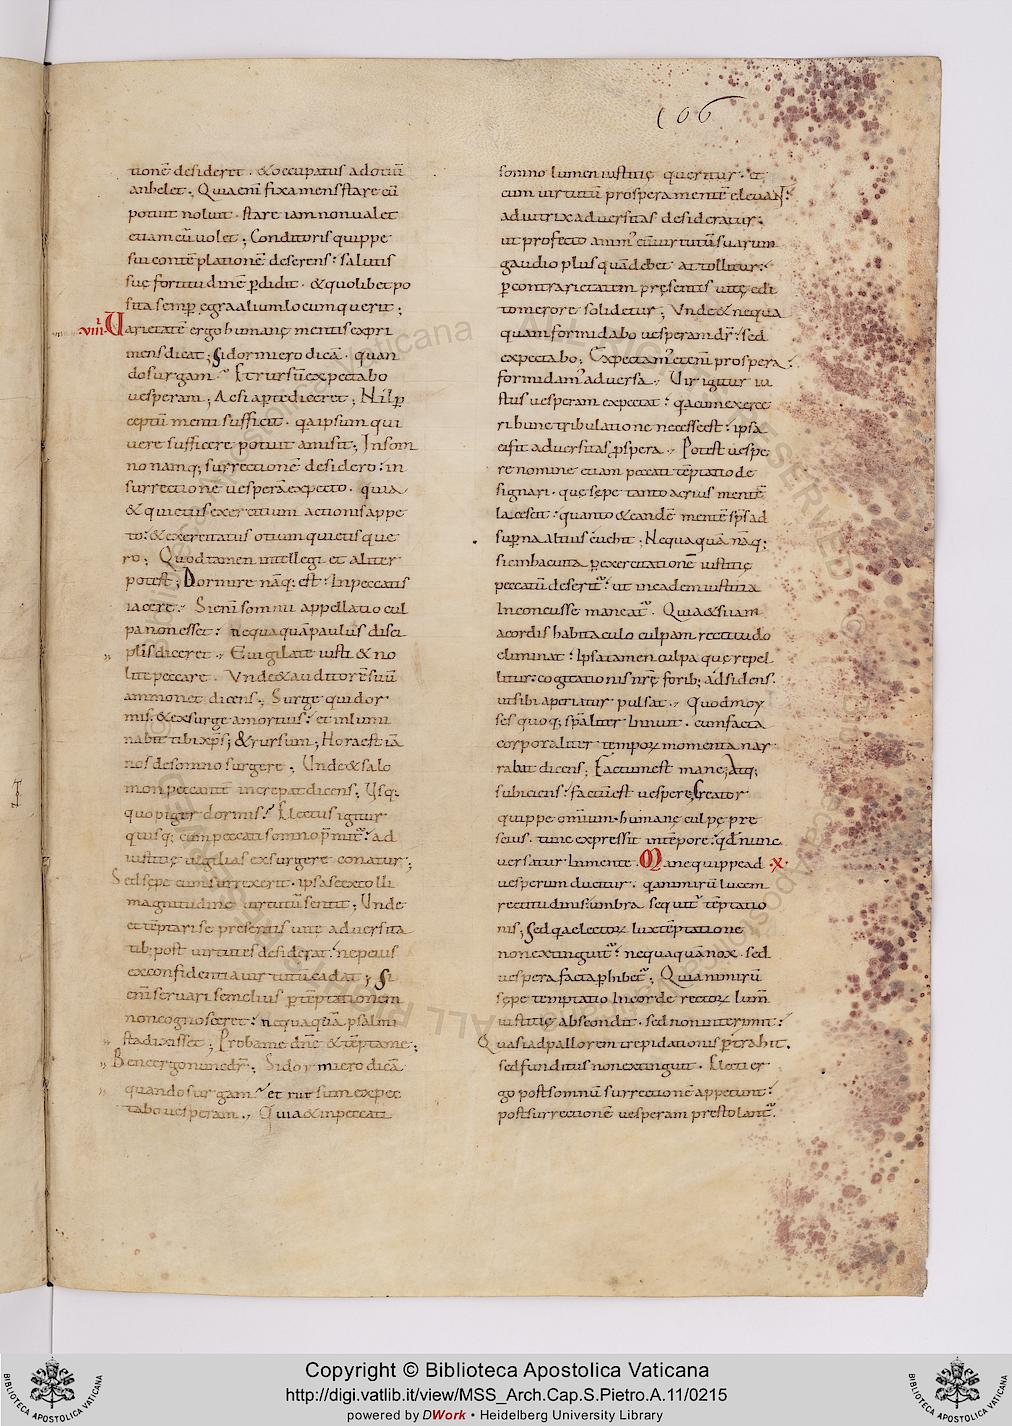 106
tionē desideret · & occupatus ad otiū
anhelet ; Quia enī fixa mens stare cū
potuit noluit · stare iam non ualet
etiam cū uolet ; Conditoris quippe
sui contēplationē deserens : salutis
suę fortitudinē pdidit · & quolibet po
sita semp egra alium locum querit ;
·viiii· Uarietatē ergo humanę mentis expri
mens dicat ; Si dormiero dicā · quan
do surgam ? Et rursū expectabo
uesperam ; Ac si apte diceret ; Nil p
ceptū menti sufficit · qa ipsum qui
uere sufficere potuit amisit ; In som
no namq; surrectionē desidero : in
surrectione uesperā expecto · quia
& quietus exercitium actionis appe
to : & exercitatus otium quietis que
ro ; Quod tamen intellegi et aliter
potest ; Dormire nāq; est : In peccatis
iacere · Si enī somni appellatio cul
pa non esset : nequaquā paulus disci
plis diceret · Euigilate iusti & no
lite peccare · Unde & auditorē suū
ammonet dicens ; Surge qui dor
mis · & exsurge a mortuis : et inlumi
nabit tibi xps ; & rursum ; Hora est iā
nos de somno surgere ; Unde & salo
mon peccantē increpat dicens ; Usq;
quo piger dormis ? Electus igitur
quisq; cum peccati somno pmitur : ad
iustitię uigilias exsurgere conatur ;
Sed sępe cum surrexerit · ipsa se extolli
magnitudine uirtutū sentit ; Unde
et tēptari se presentis uitę aduersita
tib; post uirtutes desiderat : ne peius
ex confidentia uirtutū cadat ; Si
enī seruari se melius p tēptationem
non cognosceret : nequaquā psalmi
sta dixisset ; Proba me dnē & tēpta me ;
Bene ergo nunc dr ; Si dormiero dicā
quando surgam ? et rursum expec
tabo uesperam · Quia & in peccati
somno lumen iustitię queritur · et
cum uirtutū prospera mentē eleuant :
adiutrix aduersitas desideratur ;
ut profecto anim cū uirtutū suarum
gaudio plus quā debet attollitur :
p contrarietatem pręsentis uitę edi
to merore solidetur ; Unde & nequa
quam formidabo uesperam dr : sed
expectabo ; Expectam etenī prospera :
formidam aduersa · Uir igitur iu
stus uesperam expectat : qa cum exerce
ri hunc tribulatione necesse est : ipsa
ei fit aduersitas pspera · Potest uespe
re nomine etiam peccati tēptatio de
signari · que sępe tanto acrius mentē
lacessit : quanto & eandē mentē sps ad
supna altius euehit ; Nequaquā nāq;
sic in hac uita p exercitationē iustitię
peccatū deseritur : ut in eadem iustitia
Inconcusse maneat · Quia & si iam
a cordis habitaculo culpam rectitudo
eliminat : Ipsa tamen culpa que repel
litur : cogitationis nrę forib; adsidens ·
ut sibi aperiatur pulsat · Quod moy
ses quoq; spaliter Innuit · cum facta
corporaliter tempor momenta nar
rabit dicens ; Factum est mane ; Atq;
subiciens : factū est uespere ; Creator
quippe omnium humanę culpę pre
scius · tunc expressit in tēpore : qd nunc
uersatur In mente · Mane quippe ad ·x·
uesperum ducitur · qa nimirū lucem
rectitudinis umbra sequit tēptatio
nis ; Sed qa elector lux tēptatione
non extinguitur : nequaquā nox · sed
uespera facta phibetur ; Quia nimirū
sępe temptatio In corde rector lum
iustitię abscondit · sed non interimit :
Quasi ad pallorem trepidationis ptrahit ·
sed funditus non extinguit · Electi er
go post somnū surrectionē appetunt :
post surrectionē uesperam prestolantur ·
Copyright © Biblioteca Apostolica Vaticana
http://digi.vatlib.it/view/MSS_Arch.Cap.S.Pietro.A.11/0215
powered by DWork • Heidelberg University Library